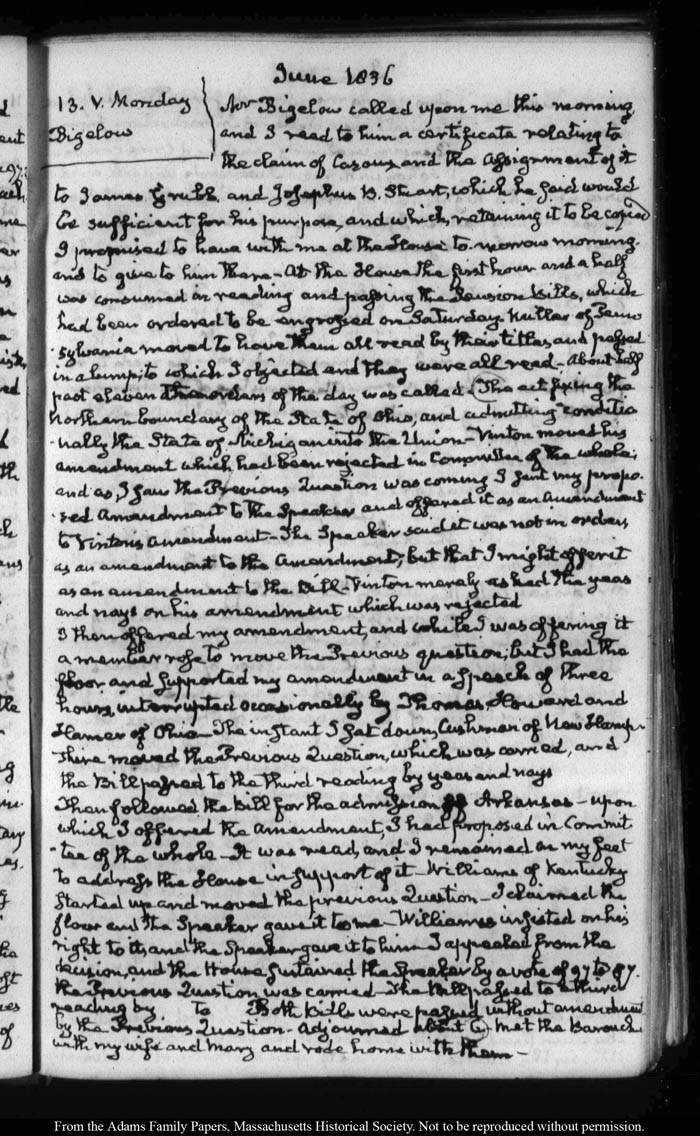 June 1836
13. V. Monday
Bigelow
Mr Bigelow called upon me this morning,
and I read to him a certificate relating to
the claim of Cazous, and the assignment of it
to James Smith, and Josephus B. Stuart, which he said would
be sufficient for his purpose, and which, retaining it to be copied
I promised to have with me at the House to-morrow morning,
and to give to him there — At the House the first hour and a half
was consumed in reading and passing the Pension Bills, which
had been ordered to be engrossed on Saturday. Miller of Penn-
-sylvania moved to have them all read by their titles, and passed
in a lump; to which I objected and they were all read — About half
past eleven the orders of the day was called. (The act fixing the
Northern boundary of the State of Ohio, and admitting conditio
-nally the State of Michigan into the Union — Vinton moved his
amendment which had been rejected in Committee of the whole;
and as, I saw the Previous Question was coming I sent my propo-
-sed amendment to the Speaker and offered it as an amendment
to Vinton's amendment — The Speaker said it was not in order,
as an amendment to the amendment, but that I might offer it
as an amendment to the Bill — Vinton merely asked the yeas
and nays on his amendment which was rejected
I then offered my amendment, and while I was offering it
a member rose to move the Previous question; but I had the
floor and supported my amendment in a speech of three
hours, interrupted occasionally by Thomas, Howard and
Hamer of Ohio — The instant I sat down, Cushman of New Hamp-
-shire moved the Previous Question, which was carried, and
the Bill passed to the third reading by yeas and nays
Then followed the bill for the admission of Arkansas — upon
which I offered the amendment, I had proposed in Commit
-tee of the whole — It was read, and I remained on my feet
to address the House in support of it — Williams of Kentucky
started up and moved the previous Question — I claimed the
floor and the Speaker gave it to me — Williams insisted on his
right to it, and the Speaker gave it to him — I appealed from the
decision, and the House sustained the Speaker by a vote of 97 to 87.
the Previous Question was carried — The Bill passed to a third
reading by to Both Bills were passed without amendment
by the Previous Question — Adjourned about 6) met the Barouche
with my wife and Mary and rode home with them —
From the Adams Family Papers, Massachusetts Historical Society. Not to be reproduced without permission.